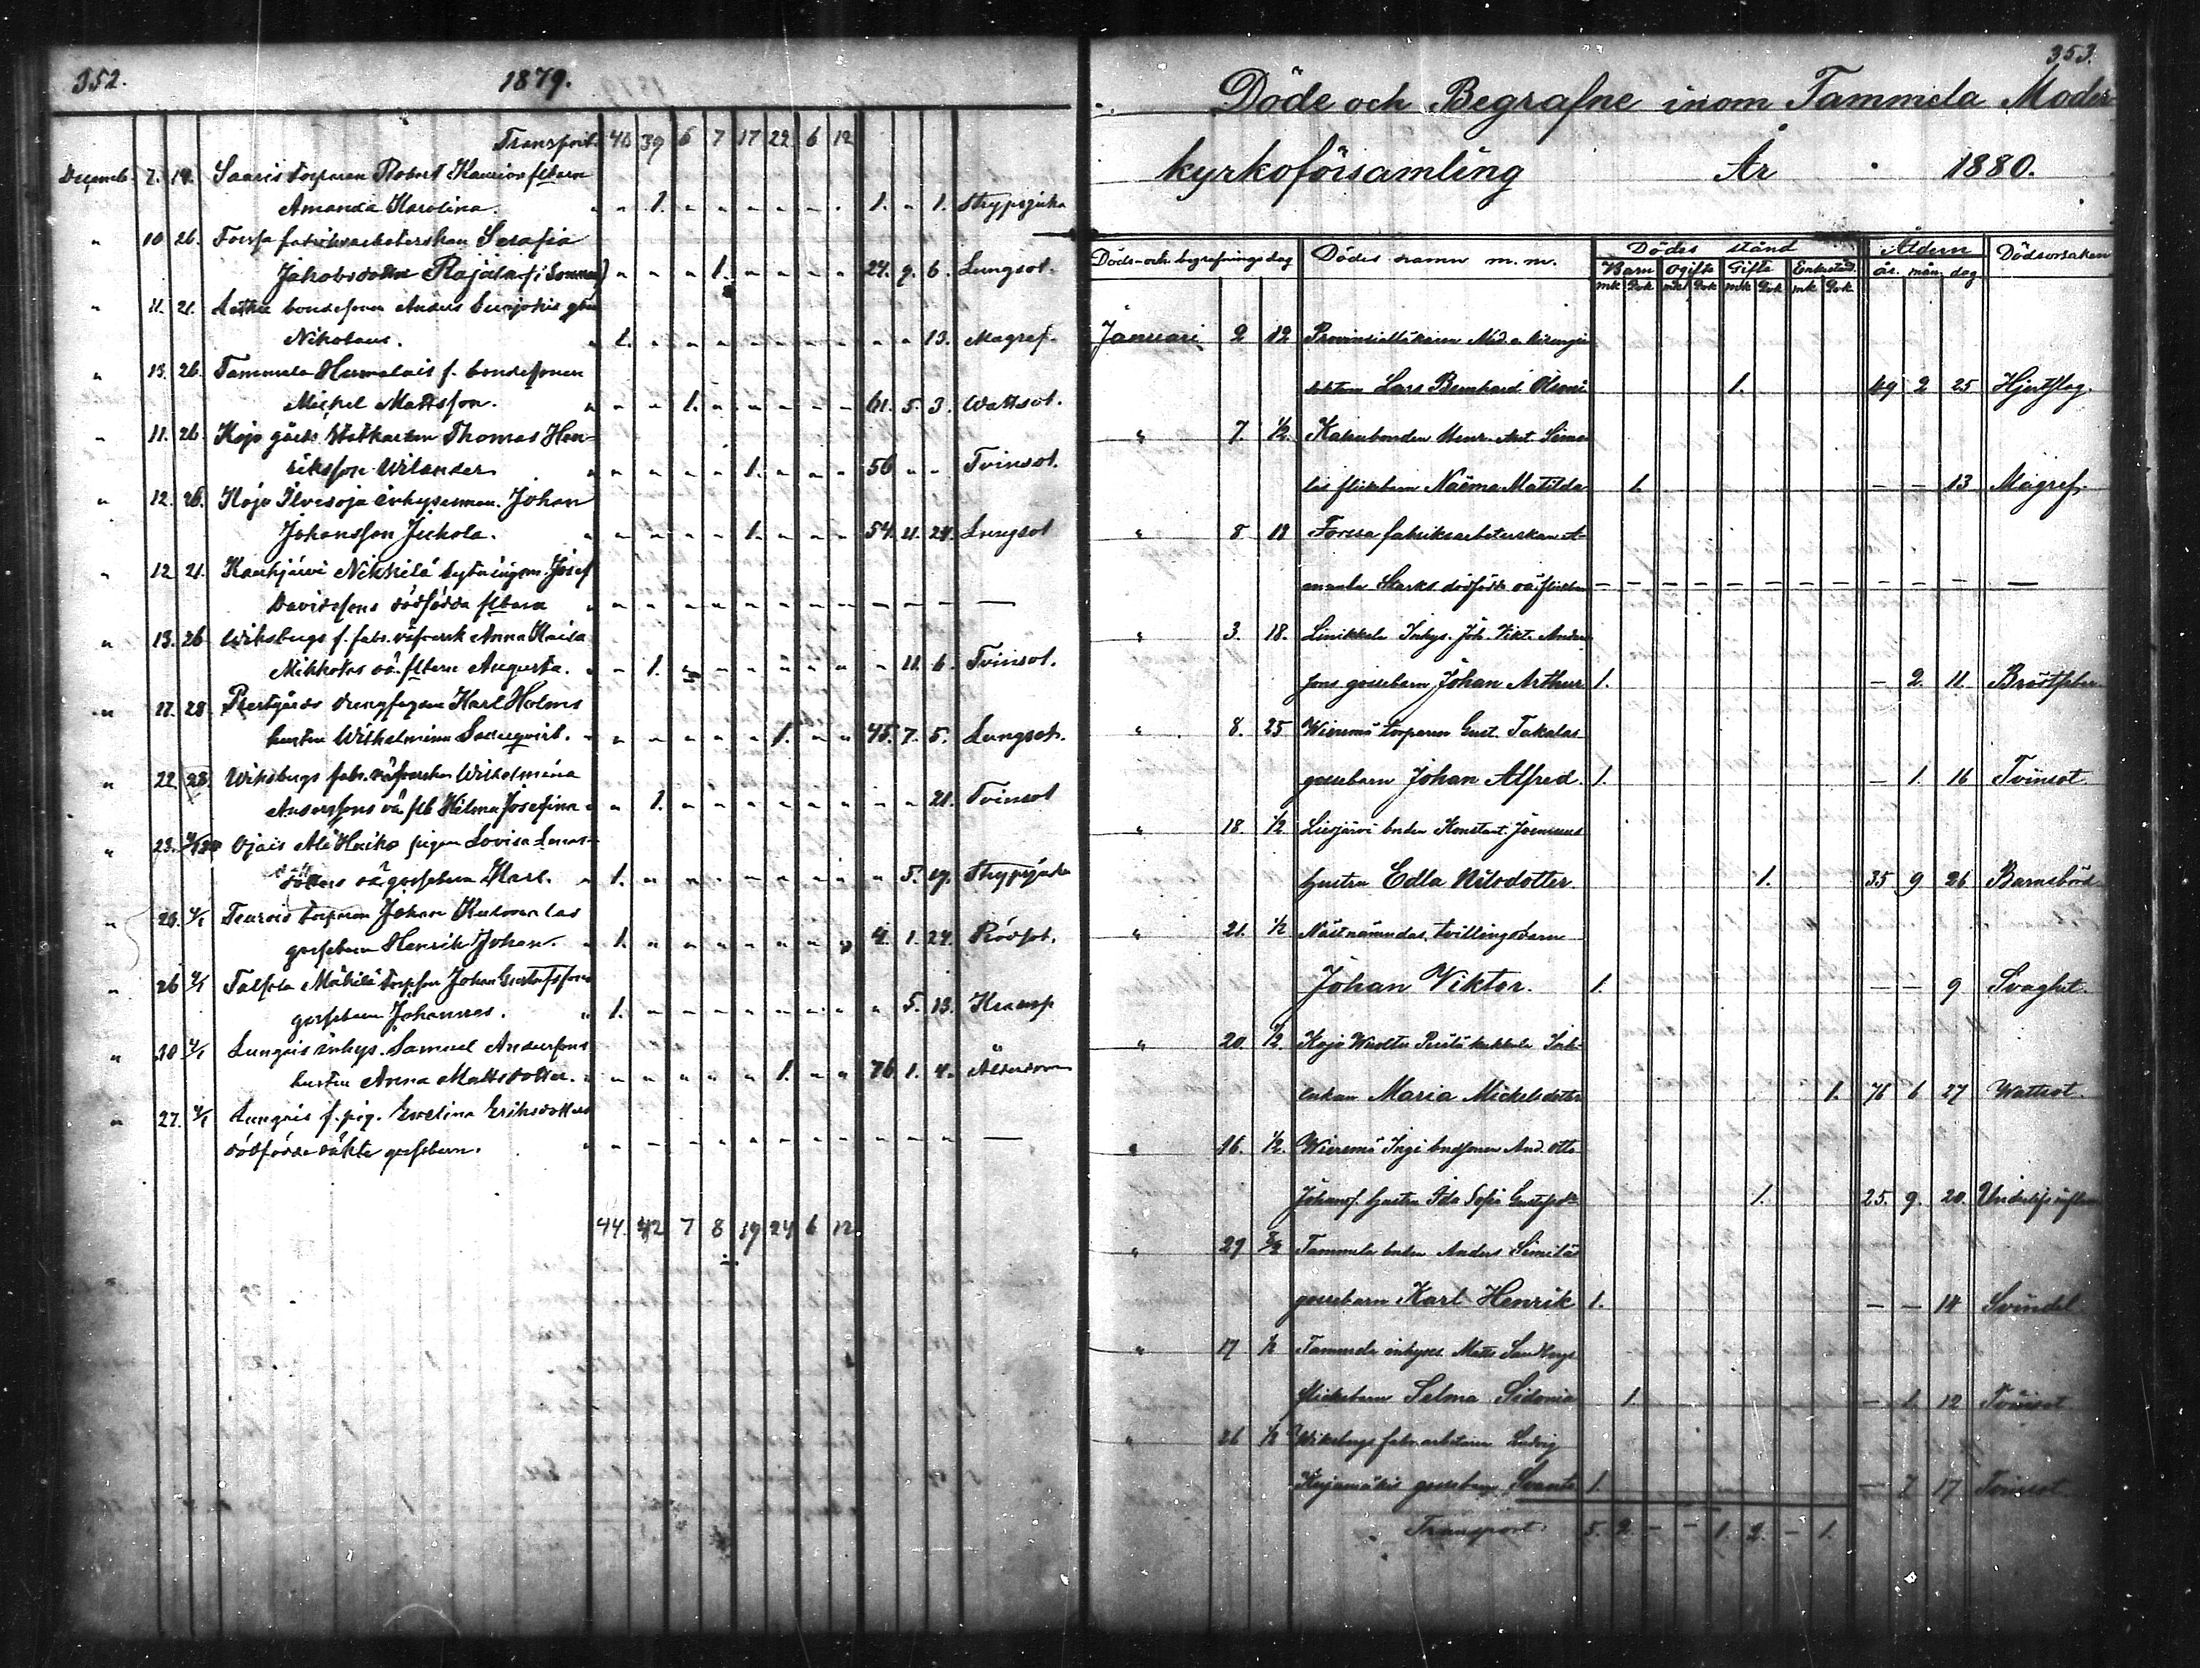 352.
1879.
Transport. 40 39 6 7 17 22 6 12
Decemb. 7. 19. Saaris torparen Robert flbarn
Amanda Karolina. " " 1. " " " " " . 1. " 1. Strypsjuka
" 10 26. Forssa fabriksarbeterskan Serafia
Jakobsdotter Rajala (i Somero) " " " " 1. " " " " 24. 9. 6. Lungsot.
" 11. 21. bondesonen Anders
Nikolaus. " 1. " " " " " " " " " 13. Magref.
" 13. 26. Tammela Humalais f. bondesonen
Michel Mattsson. " " " 1. " " " " " 61. 5. 3. Wattsot.
" 11. 26. Kojo gårds Thomas Hen-
riksson Wilander " " " " " 1. " " " 56 " " Tvinsot.
" 12. 26. Kojo Ilvesoja inhysesman. Johan
Johansson Jickola. " " " " " 1. " " " 54. 11. 24. Lungsot
" 12 21. Kaukjärvi Nikkilä sytningsm. Josef
Davidssons dödfödda flbarn " " " " " " " " " — — — —
" 13. 26 Wiksbergs f. fabr. Anna Kaisa
Mikkolas oä. flbarn Augusta. " " 1. " " " " " " " 11. 6. Tvinsot.
" 17. 28. Prestgårds Karl Holms
hustru Wilhelmina " " " " " " 1. " " 45. 7. 5. Lungsot.
" 22 28. Wiksbergs fabr. Wilhelmina
Anderssons oä flb Hilma Josefina " " 1. " " " " " " " " 21. Tvinsot
" 23. Ojais Ali Heiko pigan Lovisa
oä gossebarn Karl. " 1. " " " " " " " " 5. 19. Strypsjuka
" 20. 4/1 torparen Johan
gossebarn Henrik Johan. " 1. " " " " " " " 4. 1. 24. Rödsot.
" 26 4/1 Talpela Mäkilä Johan Gustafssons
gossebarn Johannes. " 1. " " " " " " " " 5. 13. Kramp
" 30 4/1 Lunguis inhys. Samuel Anderssons
hustru Anna Mattsdotter. " " " " " " 1. " " 76 1. 4. Ålderdom
" 27. 4/1 Lunguis f. pig. Evelina Eriksdotters
dödfödda oäkta gossebarn. " " " " " " " " " " " " —
44. 42 7 8 19 24 6 12.
353.
Döde och Begrafne inom Tammela Moder-
kyrkoförsamling År 1880.
Döds- och begrafnings dag Dödes namn m. m. Dödes stånd Åldern Dödsorsaken
Barn Ogifte Gifte Enkestånd. år. mån. dag
mk Qvk mk Qvk mk Qvk mk Qvk
Januari 2 12 Provincialläkaren Med. o. kirurgie
doktorn Lars Bernhard 1. 49 2 25 Hjertslag.
" 7. 1/2. Henr. Ant.
flickebarn Naëma Matilda 1. — — 13 Magref.
" 8 18 Forssa fabriksarbeterskan A-
manda Starks dödfödda oä. flickebarn — — — — — — — — — — — —
" 3. 18. Linikkala Inhys. Joh. Vikt. Anders-
sons gossebarn Johan Arthur 1. — 2. 11. Bröstfeber
" 8. 25 Wieremä torparen Gust. Takalas
gossebarn Johan Alfred. 1. — 1. 16 Tvinsot
" 18 1/2 Liesjärvi bonden Konstant.
hustru Edla Nilsdotter. 1. 35 9 26 Barnsbörd
" 21. 1/2 Nästnämndas tvillingsbarn
Johan Viktor. 1. — — 9 Svaghet.
" 20. 1/2 Kojo
Maria Mickelsdotter 1. 76 6 27 Wattsot.
" 16. 1/2. Wieremä Ingi bondsonen And. Otto
Johanss. hustru Ida Sofia Gustafsdr 1. 25. 9. 20.
" 29 Tammela bonden Anders Simolas
gossebarn Karl Henrik 1. — — 14 Svindel
" 17 1/2 Tammela inhyses Matts Sandbergs
flickebarn Selma Sidonia 1. — 1. 12 Tvinsot.
" 26 1/2 Wiksbergs fabr. arbetaren Ludvig
Kujamäkis gossebarn Svante 1. — 7 17 Tvinsot.
Transport. 5. 2. — — 1. 2. — 1.